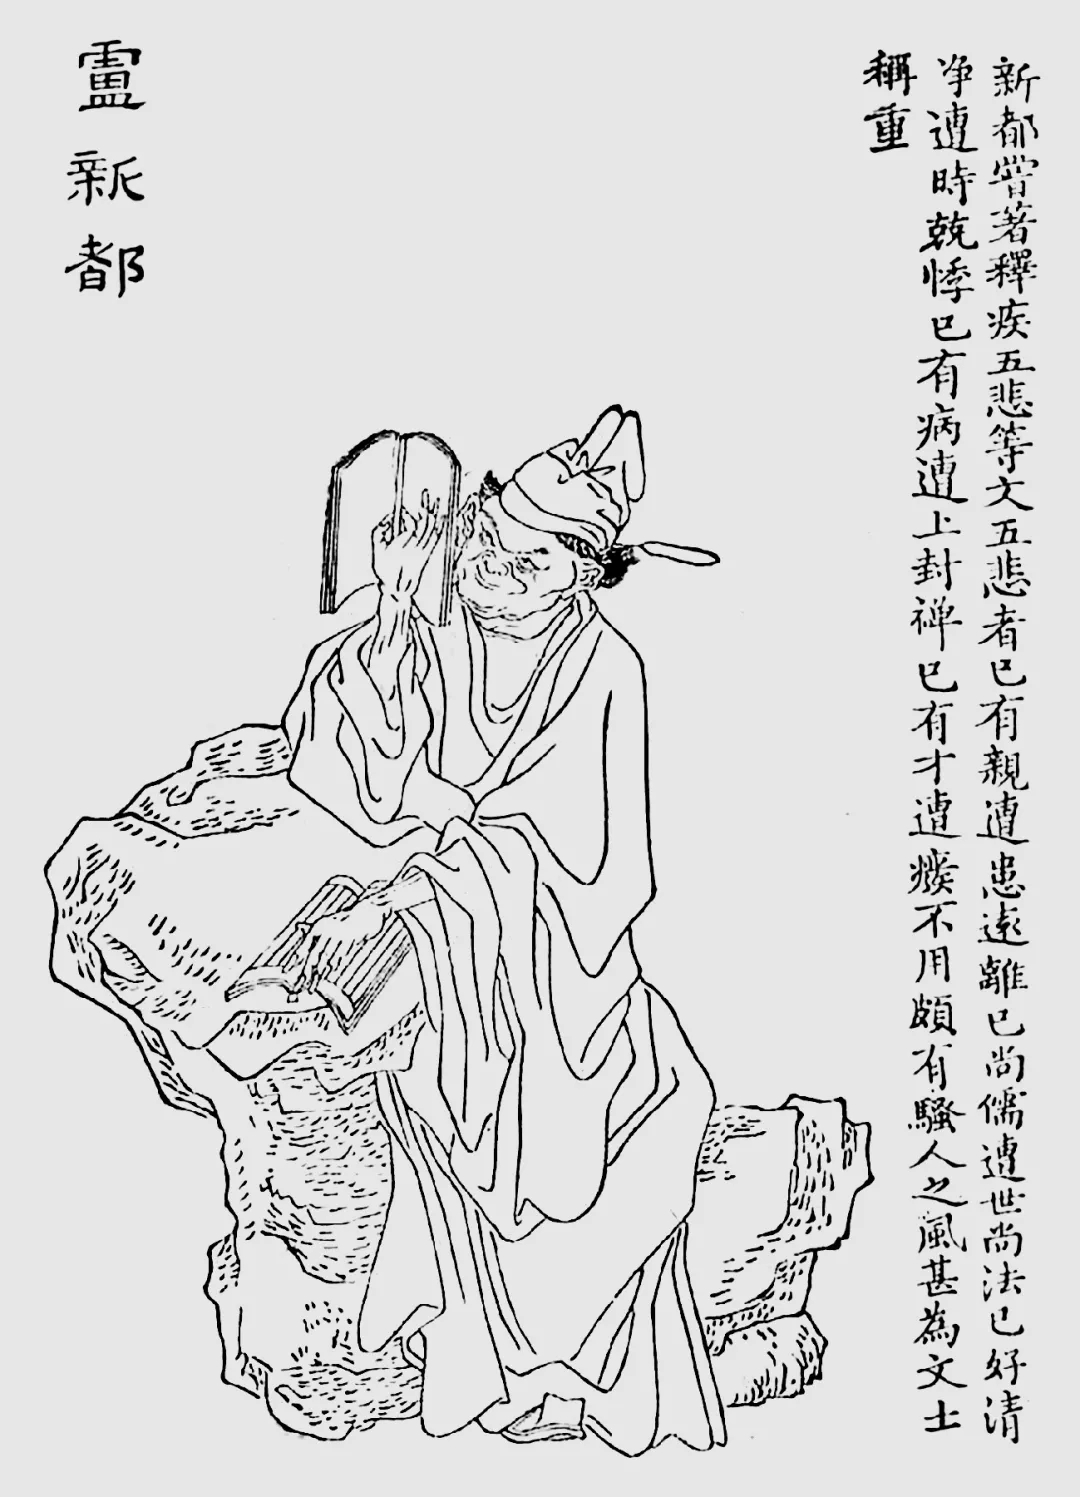 新都甞著釋疾五悲等文五悲者已有親遭患遠離已尚儒遭世尚法已好清
净遭時兢悸已有病遭上封禅已有才遭癈不用頗有騷人之風甚為文士
稱重
盧新都